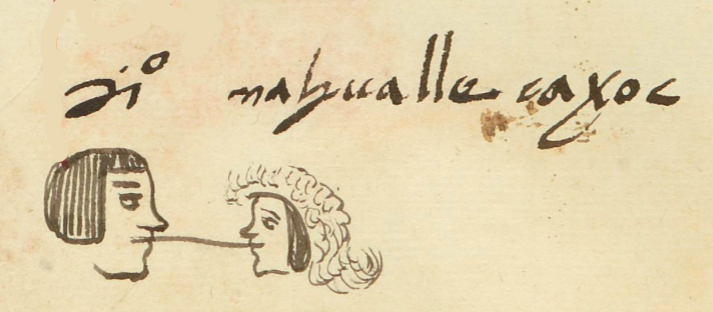 diº nahualle caxoc